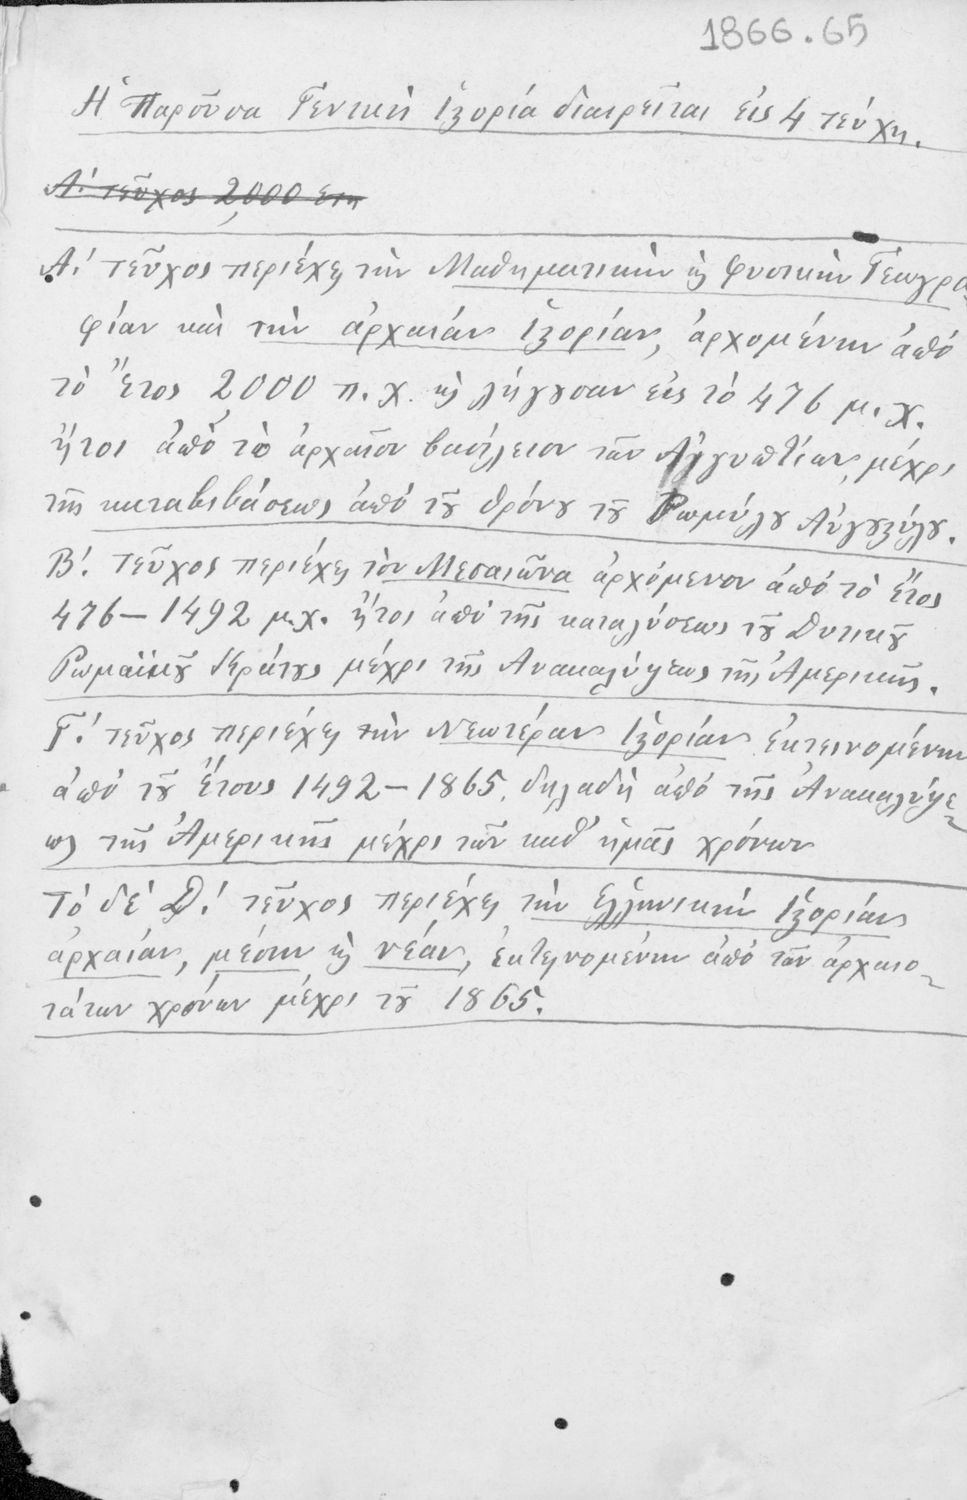 1866.65
Ἡ Παροῦσα Γενικὴ Ἱϛορία διαιρεῖται εἰς 4 τεύχη.
Α΄. τεῦχος 2,000 ετη
Α΄. τεῦχος περιέχει τὴν Μαθηματικὴν ϗ Φυσικὴν Γεωγρα
φίαν καὶ τὴν ἀρχαίαν Ἱϛορίαν, ἀρχομένην ἀπὸ
τὸ ἔτος 2000 π.χ. ϗ λήγȣσαν εἰς τὸ 476 μ.χ.
ἤτοι ἀπὸ τὸ ἀρχαῖον βασίλειον τῶν Αἰγυπτίων, μέχρι
τῆς καταβιβάσεως ἀπὸ τȣ͂ θρόνȣ τȣ͂ Ρωμύλȣ Αὐγȣϛύλȣ.
Β΄. τεῦχος περιέχει τὸν Μεσαιῶνα ἀρχόμενον ἀπὸ τὸ ἔτος
476–1492 μ.χ. ἤτοι ἀπὸ τῆς καταλύσεως τȣ͂ Δυτικȣ͂
Ρωμαϊκȣ͂ Κράτȣς μέχρι τῆς Ἀνακαλύψεως τῆς Ἀμερικῆς.
Γ΄. τεῦχος περιέχει τὴν Νεωτέραν Ἱϛορίαν ἐκτεινομένην
ἀπὸ τȣ͂ ἔτους 1492–1865, δηλαδὴ ἀπὸ τῆς Ἀνακαλύψε-
ως τῆς Ἀμερικῆς μέχρι τῶν καθ' ἡμᾶς χρόνων
Τὸ δὲ Δ΄. τεῦχος περιέχει τὴν Ελληνικὴν Ἱϛορίαν
ἀρχαίαν, μέσην ϗ νέαν, ἐκτεινομένην ἀπὸ τῶν ἀρχαιο-
τάτων χρόνων μέχρι τȣ͂ 1865.